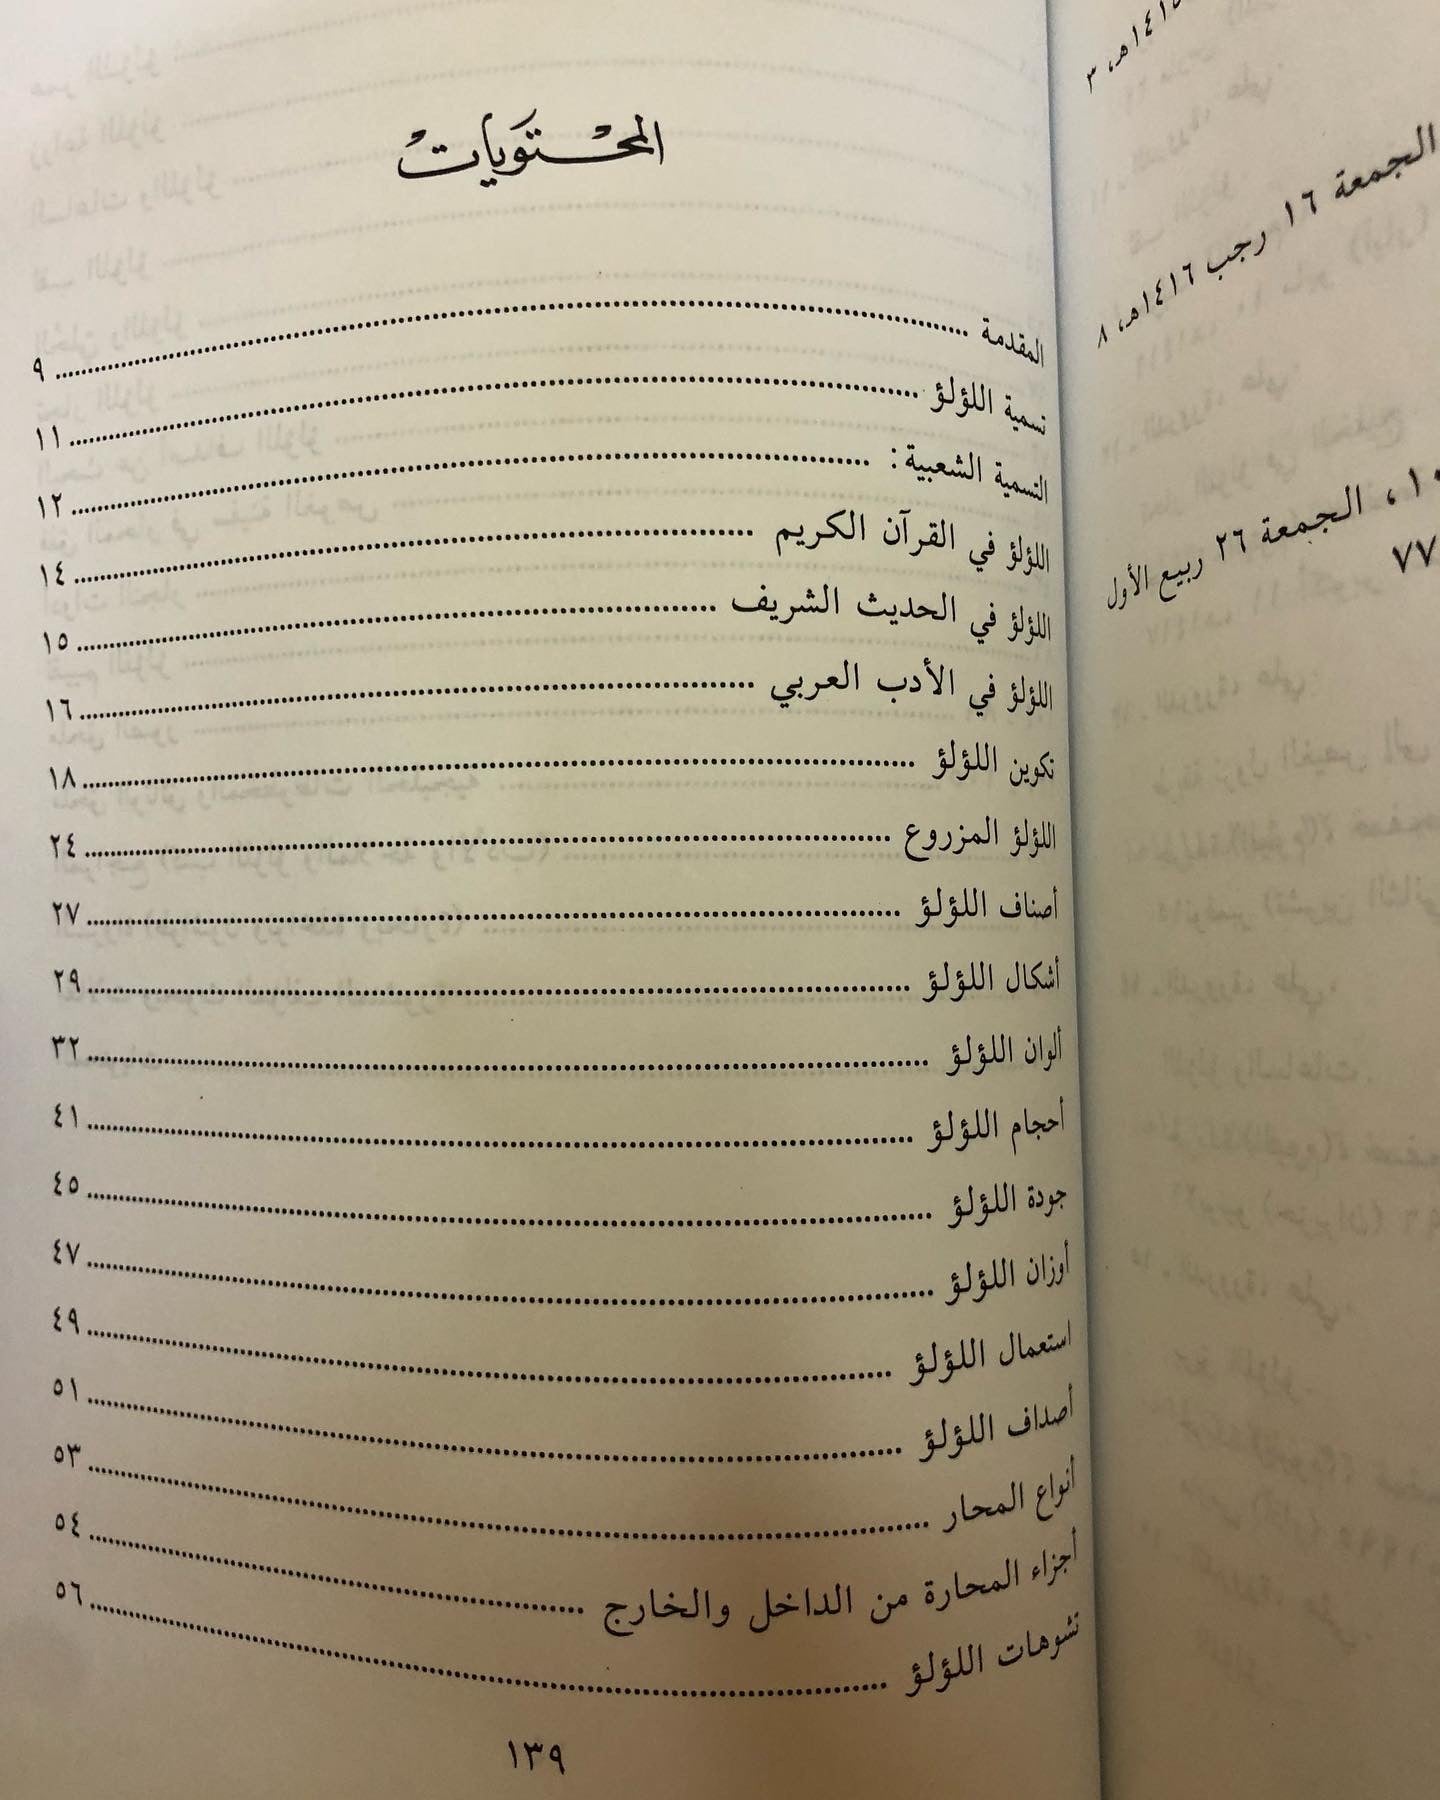 المحتويات
المقدمة ........ ٩
تسمية اللؤلؤ ........ ١١
التسمية الشعبية: ........ ١٢
اللؤلؤ في القرآن الكريم ........ ١٤
اللؤلؤ في الحديث الشريف ........ ١٥
اللؤلؤ في الأدب العربي ........ ١٦
تكوين اللؤلؤ ........ ١٨
اللؤلؤ المزروع ........ ٢٤
أصناف اللؤلؤ ........ ٢٧
أشكال اللؤلؤ ........ ٢٩
ألوان اللؤلؤ ........ ٣٢
أحجام اللؤلؤ ........ ٤١
جودة اللؤلؤ ........ ٤٥
أوزان اللؤلؤ ........ ٤٧
استعمال اللؤلؤ ........ ٤٩
أصداف اللؤلؤ ........ ٥١
أنواع المحار ........ ٥٣
أجزاء المحارة من الداخل والخارج ........ ٥٤
تشوهات اللؤلؤ ........ ٥٦
١٣٩
٣
الجمعة ١٦ رجب ١٤١٦هـ، ٨
، الجمعة ٢٦ ربيع الأول
٧٧